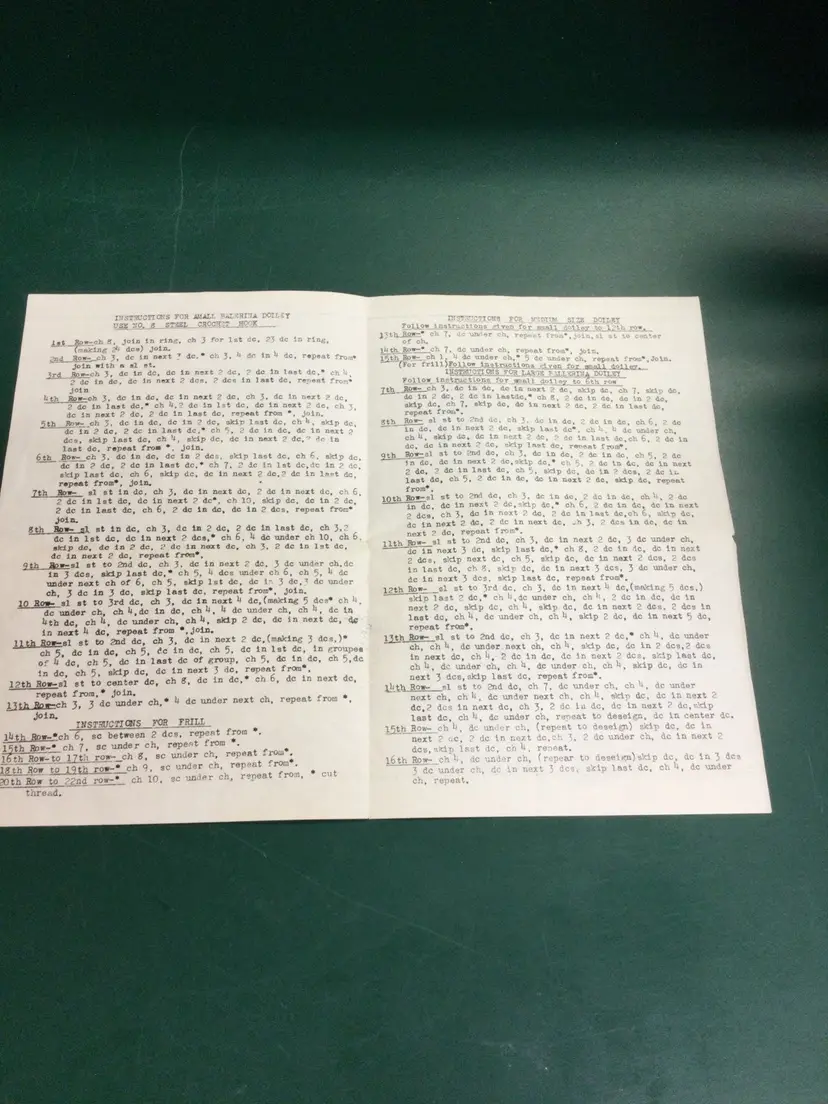 INSTRUCTIONS FOR SMALL BALERINA DOILEY
USE NO. 8 STEEL CROCHET HOOK
1st Row-ch 8, join in ring, ch 3 for 1st dc, 23 dc in ring,
(making 24 dcs) join.
2nd Row- ch 3, dc in next 3 dc,* ch 3, 4 dc in 4 dc, repeat from*
join with a sl st.
3rd Row-ch 3, dc in dc, dc in next 2 dc, 2 dc in last dc,* ch 4,
2 dc in dc, dc in next 2 dcs, 2 dcs in last dc, repeat from*
join
4th Row-ch 3, dc in dc, dc in next 2 dc, ch 3, dc in next 2 dc,
2 dc in last dc,* ch 4,2 dc in 1st dc, dc in next 2 dc, ch 3,
dc in next 2 dc, 2 dc in last dc, repeat from *, join.
5th Row-ch 3, dc in dc, dc in 2 dc, skip last dc, ch 4, skip dc,
dc in 2 dc, 2 dc in last dc.* ch 5, 2 dc in dc, dc in next 2
dcs, skip last dc, ch 4, skip dc, dc in next 2 dc,2 dc in
last dc, repeat from *, join.
6th Row-ch 3, dc in dc, dc in 2 dcs, skip last dc, ch 6, skip dc,
dc in 2 dc, 2 dc in last dc,* ch 7, 2 dc in 1st dc,dc in 2 dc,
skip last dc, ch 6, skip dc, dc in next 2 dc,2 dc in last dc,
repeat from*, join.
7th Row- sl st in dc, ch 3, dc in next dc, 2 dc in next dc, ch 6,
2 dc in 1st dc, dc in next 2 dc*, ch 10, skip dc, dc in 2 dc,
2 dc in last dc, ch 6, 2 dc in dc, dc in 2 dcs, repeat from*,
join.
8th Row- sl st in dc, ch 3, dc in 2 dc, 2 dc in last dc, ch 3,2
dc in 1st dc, dc in next 2 dcs,* ch 6, 4 dc under ch 10, ch 6,
skip dc, dc in 2 dc, 2 dc in next dc, ch 3, 2 dc in 1st dc,
dc in next 2 dc, repeat from*.
9th Row-sl st to 2nd dc, ch 3, dc in next 2 dc, 3 dc under ch,dc
in 3 dcs, skip last dc,* ch 5, 4 dcs under ch 6, ch 5, 4 dc
under next ch of 6, ch 5, skip 1st dc, dc in 3 dc,3 dc under
ch, 3 dc in 3 dc, skip last dc, repeat from*, join.
10 Row- sl st to 3rd dc, ch 3, dc in next 4 dc,(making 5 dcs* ch 4,
dc under ch, ch 4,dc in dc, ch 4, 4 dc under ch, ch 4, dc in
4th dc, ch 4, dc under ch, ch 4, skip 2 dc, dc in next dc, dc
in next 4 dc, repeat from *,join.
11th Row-sl st to 2nd dc, ch 3, dc in next 2 dc,(making 3 dcs,)*
ch 5, dc in dc, ch 5, dc in dc, ch 5, dc in 1st dc, in groupes
of 4 dc, ch 5, dc in last dc of group, ch 5, dc in dc, ch 5,dc
in dc, ch 5, skip dc, dc in next 3 dc, repeat from*.
12th Row-sl st to center dc, ch 8, dc in dc,* ch 6, dc in next dc,
repeat from,* join.
13th Row-ch 3, 3 dc under ch,* 4 dc under next ch, repeat from *,
join.
INSTRUCTIONS FOR FRILL
14th Row-*ch 6, sc between 2 dcs, repeat from *.
15th Row-* ch 7, sc under ch, repeat from *.
16th Row-to 17th row-ch 8, sc under ch, repeat from*.
18th Row to 19th row-* ch 9, sc under ch, repeat from*.
20th Row to 22nd row-* ch 10, sc under ch, repeat from, * cut
thread.
INSTRUCTIONS FOR MEDIUM SIZE DOILEY
Follow instructions given for small doiley to 12th row.
13th Row-* ch 7, dc under ch, repeat from*,join,sl st to center
of ch.
14th Row-* ch 7, dc under ch, repeat from*, join.
15th Row- ch 1, 4 dc under ch,* 5 dc under ch, repeat from*,Join.
(For frill)Follow instructions given for small doiley.
INSTRUCTIONS FOR LARGE BALLERINA DOILEY
Follow instructions for small doiley to 6th row
7th Row-ch 3, dc in dc, dc in next 2 dc, skip dc, ch 7, skip dc,
dc in 2 dc, 2 dc in lastdc,* ch 8, 2 dc in dc, dc in 2 dc,
skip dc, ch 7, skip dc, dc in next 2 dc, 2 dc in last dc,
repeat from*.
8th Row- sl st to 2nd dc, ch 3, dc in dc, 2 dc in dc, ch 6, 2 dc
in dc, dc in next 2 dc, skip last dc*, ch 4, 4 dc under ch,
ch 4, skip dc, dc in next 2 dc, 2 dc in last dc,ch 6, 2 dc in
dc, dc in next 2 dc, skip last dc, repeat from*.
9th Row- sl st to 2nd dc, ch 3, dc in dc, 2 dc in dc, ch 5, 2 dc
in dc, dc in next 2 dc,skip dc,* ch 5, 2 dc in dc, dc in next
2 dc, 2 dc in last dc, ch 5, skip dc, dc in 2 dcs, 2 dc in
last dc, ch 5, 2 dc in dc, dc in next 2 dc, skip dc, repeat
from*.
10th Row-sl st to 2nd dc, ch 3, dc in dc, 2 dc in dc, ch 4, 2 dc
in dc, dc in next 2 dc,skip dc,* ch 6, 2 dc in dc, dc in next
2 dcs, ch 3, dc in next 2 dc, 2 dc in last dc, ch 6, skip dc,
dc in next 2 dc, 2 dc in next dc, ch 3, 2 dcs in dc, dc in
next 2 dc, repeat from*.
11th Row-sl st to 2nd dc, ch 3, dc in next 2 dc, 3 dc under ch,
dc in next 3 dc, skip last dc,* ch 8, 2 dc in dc, dc in next
2 dcs, skip next dc, ch 5, skip dc, dc in next 2 dcs, 2 dcs
in last dc, ch 8, skip dc, dc in next 3 dcs, 3 dc under ch,
dc in next 3 dcs, skip last dc, repeat from*.
12th Row- sl st to 3rd dc, ch 3, dc in next 4 dc,(making 5 dcs,)
skip last 2 dc,* ch 4,dc under ch, ch 4, 2 dc in dc, dc in
next 2 dc, skip dc, ch 4, skip dc, dc in next 2 dcs, 2 dcs in
last dc, ch 4, dc under ch, ch 4, skip 2 dc, dc in next 5 dc,
repeat from*.
13th Row- sl st to 2nd dc, ch 3, dc in next 2 dc,* ch 4, dc under
ch, ch 4, dc under next ch, ch 4, skip dc, dc in 2 dcs,2 dcs
in next dc, ch 4, 2 dc in dc, dc in next 2 dcs, skip last dc,
ch 4, dc under ch, ch 4, dc under ch, ch 4, skip dc, dc in
next 3 dcs,skip last dc, repeat from*.
14th Row- sl st to 2nd dc, ch 7, dc under ch, ch 4, dc under
next ch, ch 4, dc under next ch, ch 4, skip dc, dc in next 2
dc,2 dcs in next dc, ch 3, 2 dc in dc, dc in next 2 dc,skip
last dc, ch 4, dc under ch, repeat to deseign, dc in center dc.
15th Row- ch 4, dc under ch, (repeat to deseign) skip dc, dc in
next 2 dc, 2 dc in next dc,ch 3, 2 dc under ch, dc in next 2
dcs,skip last dc, ch 4, repeat.
16th Row- ch 4, dc under ch, (repear to deseign)skip dc, dc in 3 dcs
3 dc under ch, dc in next 3 dcs, skip last dc, ch 4, dc under
ch, repeat.